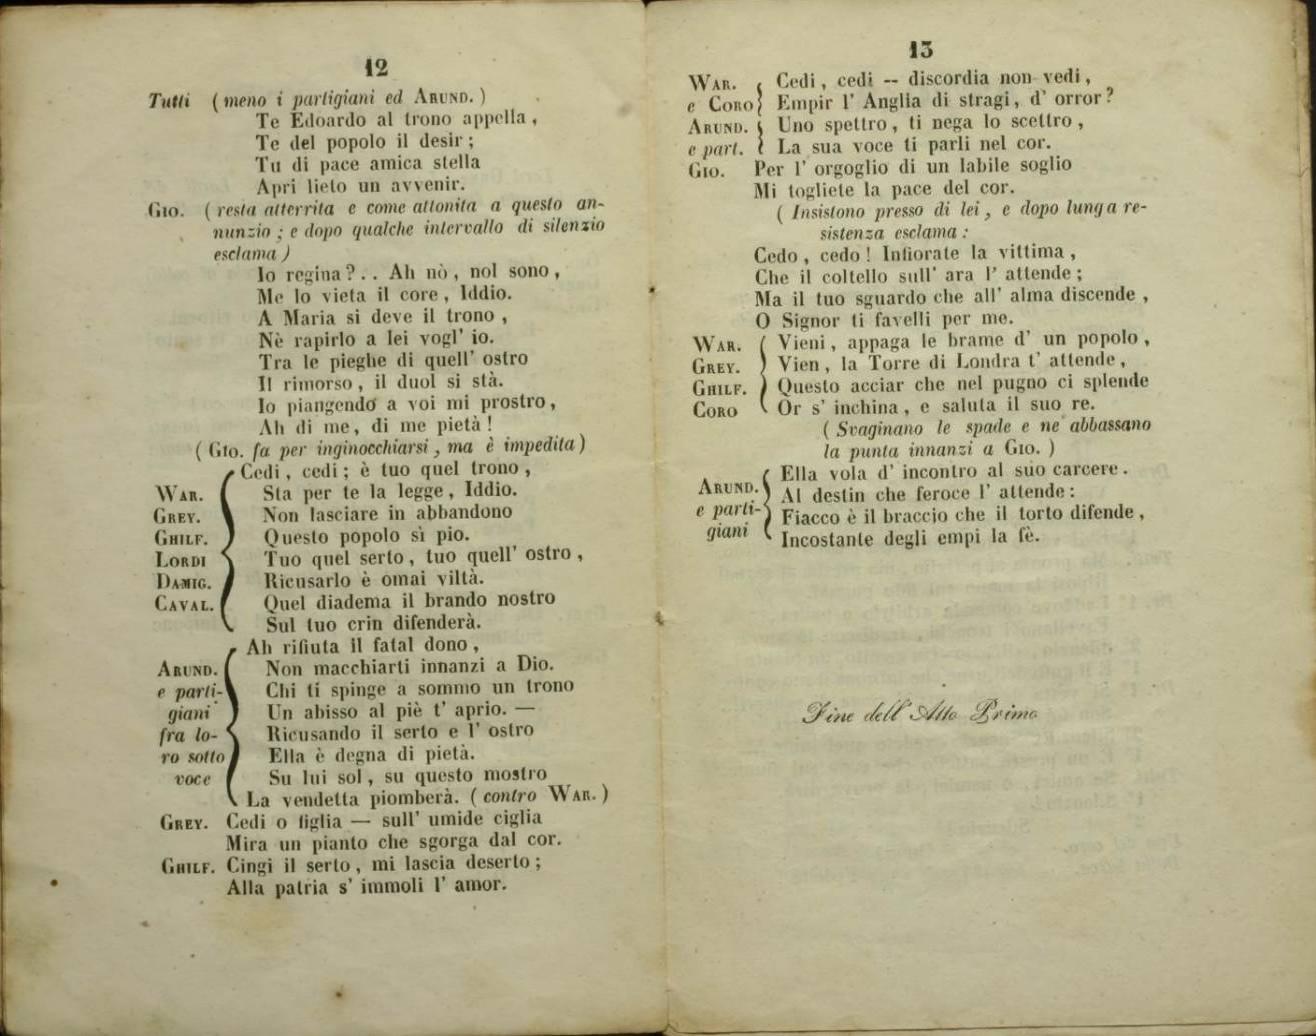 12
Tutti (meno i partigiani ed ARUND.)
Te Edoardo al trono appella,
Te del popolo il desir;
Tu di pace amica stella
Apri lieto un avvenir.
GIO. (resta atterrita e come attonita a questo an-
nunzio; e dopo qualche intervallo di silenzio
esclama)
Io regina?.. Ah nò, nol sono,
Me lo vieta il core, Iddio.
A Maria si deve il trono,
Nè rapirlo a lei vogl' io.
Tra le pieghe di quell' ostro
Il rimorso, il duol si stà.
Io piangendo a voi mi prostro,
Ah di me, di me pietà!
(GIO. fa per inginocchiarsi, ma è impedita)
Cedi, cedi; è tuo quel trono,
WAR. Sta per te la legge, Iddio.
GREY. Non lasciare in abbandono
GHILF. Questo popolo sì pio.
LORDI Tuo quel serto, tuo quell' ostro,
DAMIG. Ricusarlo è omai viltà.
CAVAL. Quel diadema il brando nostro
Sul tuo crin difenderà.
Ah rifiuta il fatal dono,
ARUND. Non macchiarti innanzi a Dio.
e parti- Chi ti spinge a sommo un trono
giani Un abisso al piè t' aprio. —
fra lo- Ricusando il serto e l' ostro
ro sotto Ella è degna di pietà.
voce Su lui sol, su questo mostro
La vendetta piomberà. (contro WAR.)
GREY. Cedi o figlia — sull' umide ciglia
Mira un pianto che sgorga dal cor.
GHILF. Cingi il serto, mi lascia deserto;
Alla patria s' immoli l' amor.
13
WAR. Cedi, cedi -- discordia non vedi,
e CORO Empir l' Anglia di stragi, d' orror?
ARUND. Uno spettro, ti nega lo scettro,
e part. La sua voce ti parli nel cor.
GIO. Per l' orgoglio di un labile soglio
Mi togliete la pace del cor.
(Insistono presso di lei, e dopo lunga re-
sistenza esclama:
Cedo, cedo! Infiorate la vittima,
Che il coltello sull' ara l' attende;
Ma il tuo sguardo che all' alma discende,
O Signor ti favelli per me.
WAR. Vieni, appaga le brame d' un popolo,
GREY. Vien, la Torre di Londra t' attende,
GHILF. Questo acciar che nel pugno ci splende
CORO Or s' inchina, e saluta il suo re.
(Svaginano le spade e ne abbassano
la punta innanzi a GIO.)
Ella vola d' incontro al suo carcere.
ARUND. Al destin che feroce l' attende:
e parti- Fiacco è il braccio che il torto difende,
giani Incostante degli empi la fè.
Fine dell' Atto Primo